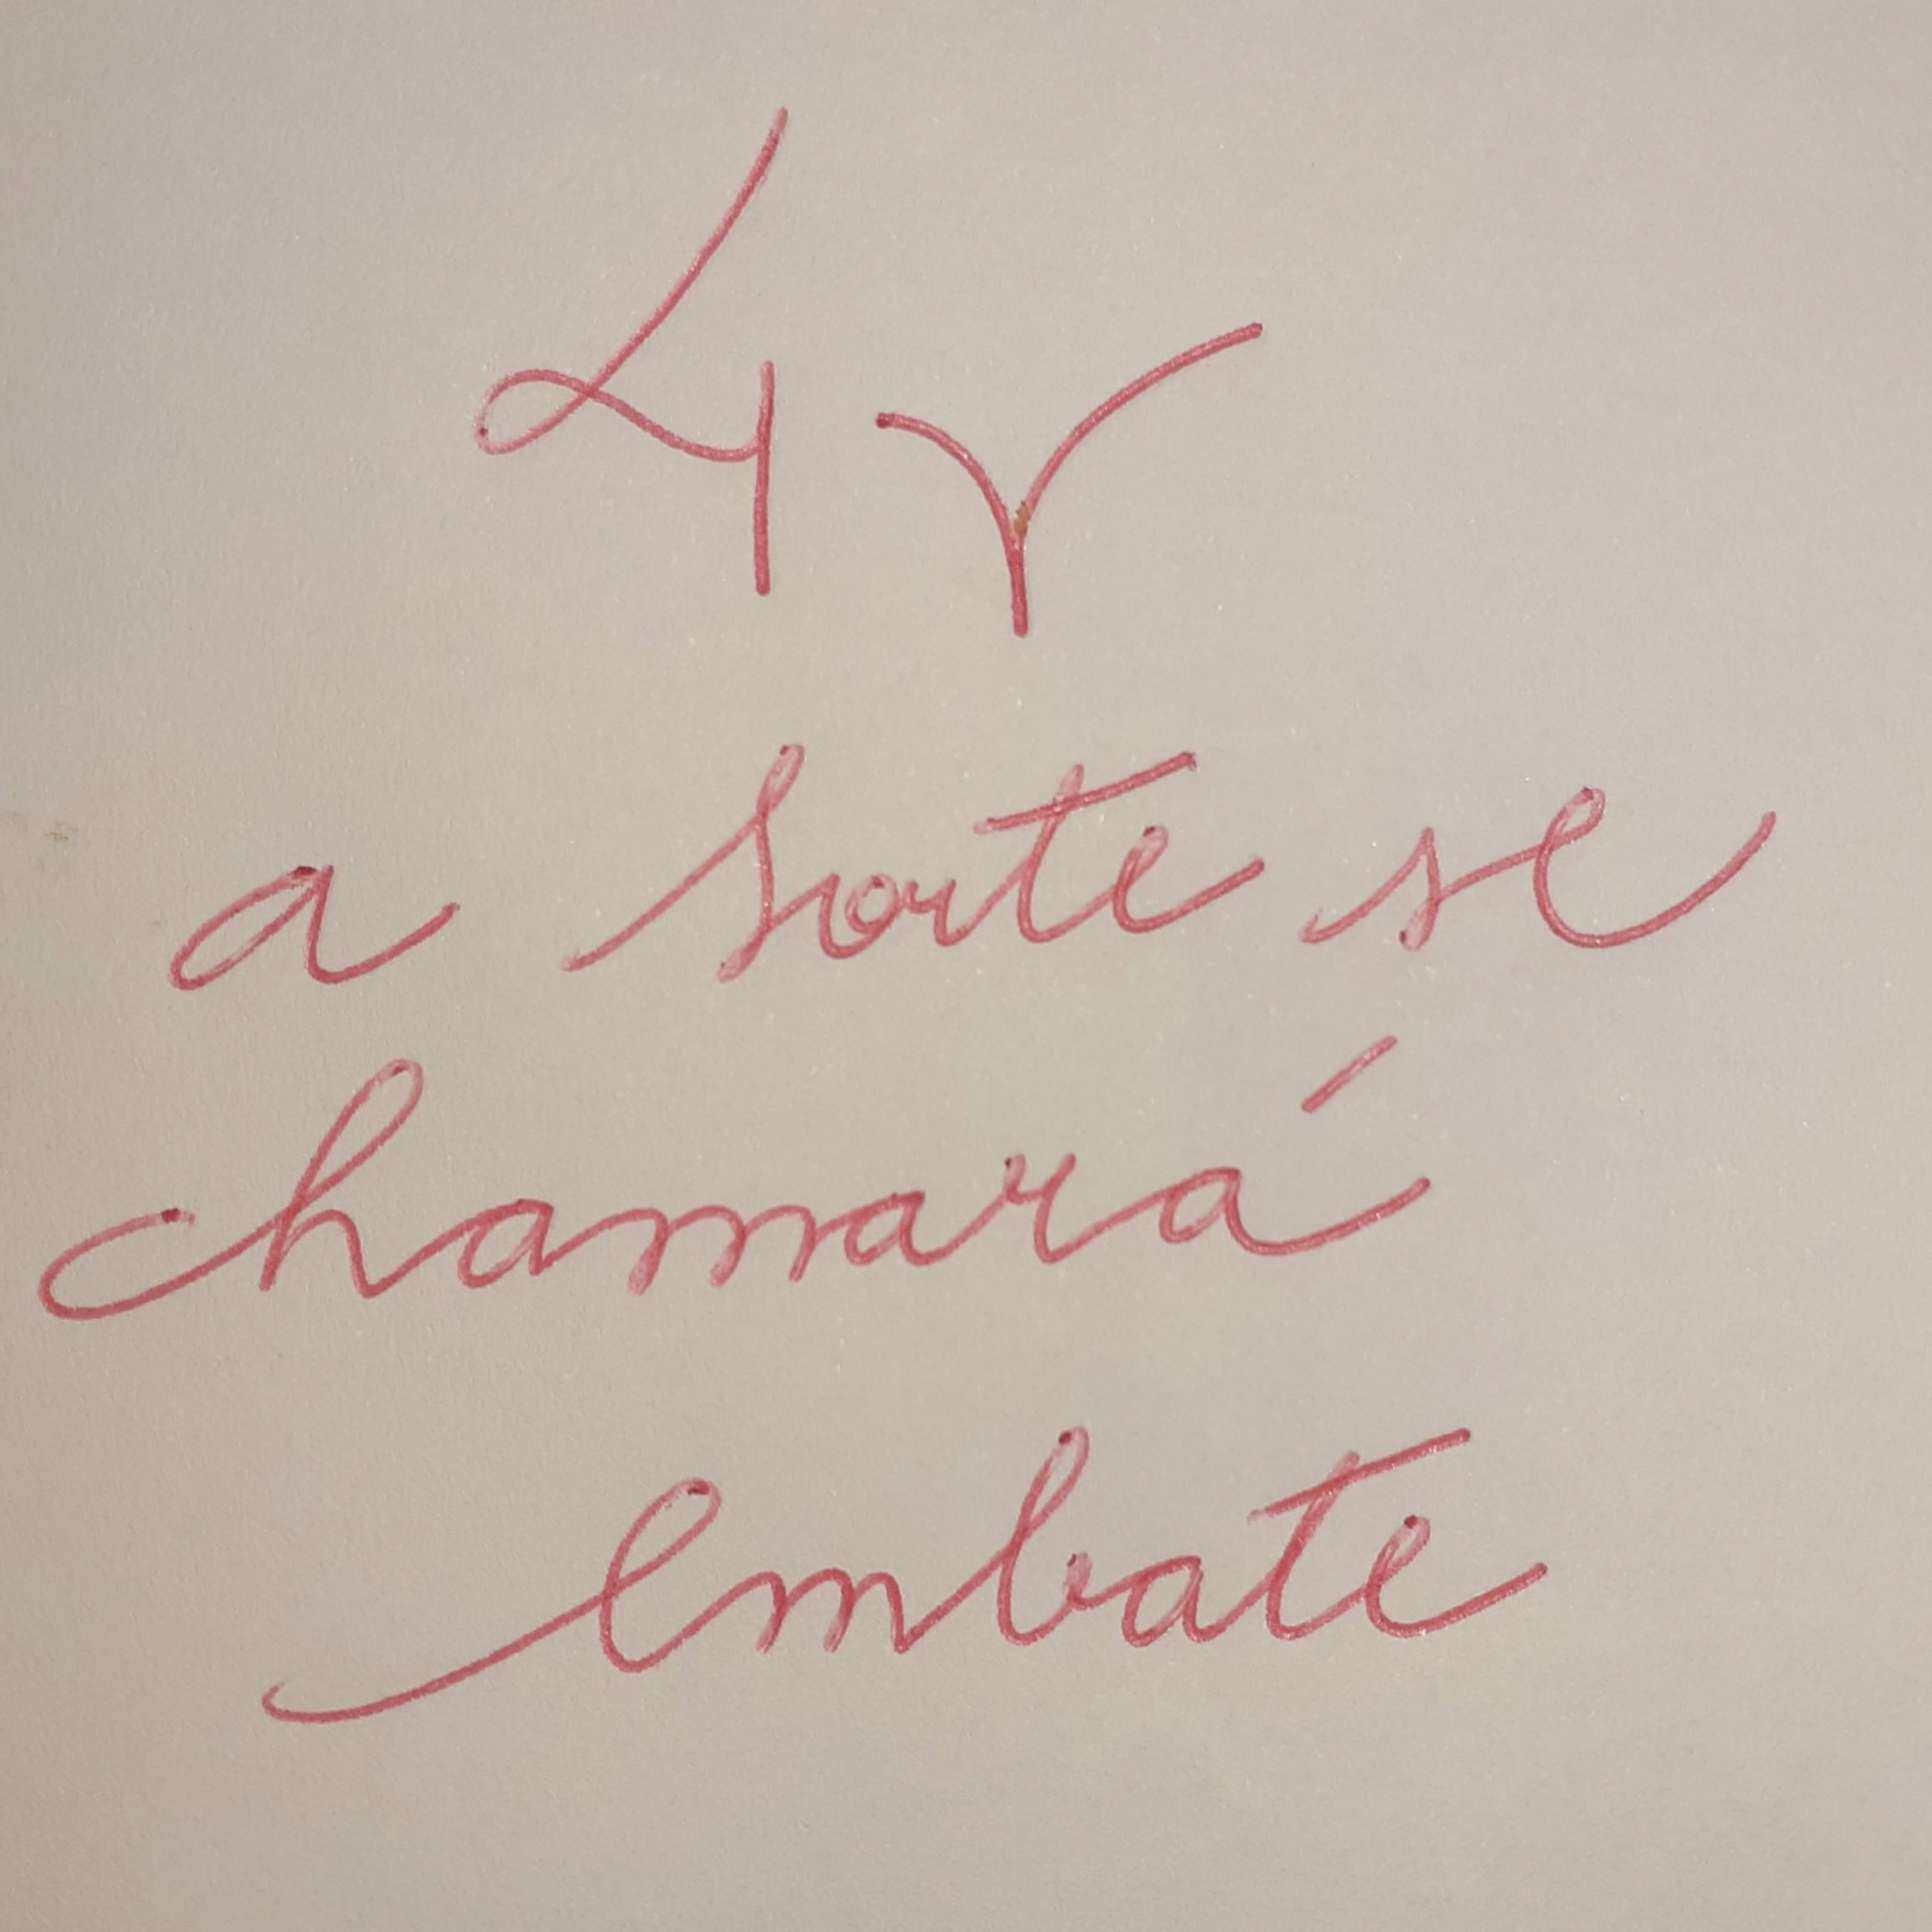 4 r
a sorte se
chamará
embate